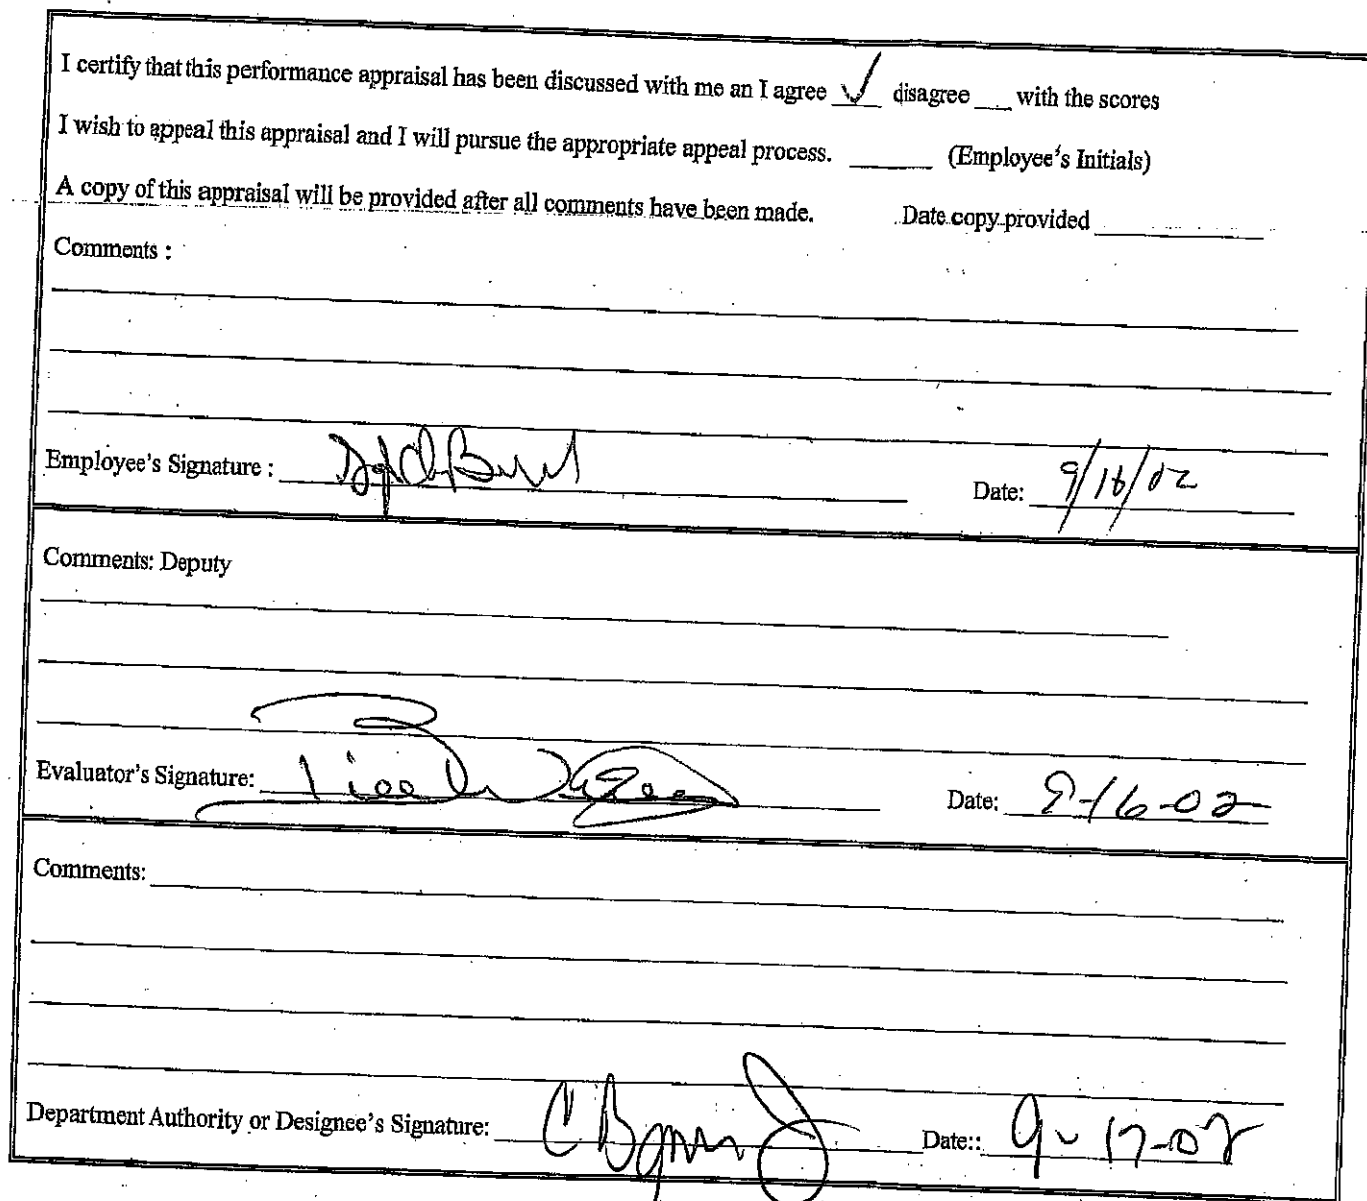 I certify that this performance appraisal has been discussed with me an I agree ✓ disagree __ with the scores
I wish to appeal this appraisal and I will pursue the appropriate appeal process. ______ (Employee's Initials)
A copy of this appraisal will be provided after all comments have been made. Date copy provided ____________
Comments :
Employee's Signature : Date: 9/16/02
Comments: Deputy
Evaluator's Signature: Date: 9-16-02
Comments:
Department Authority or Designee's Signature: Date:: 9-17-02